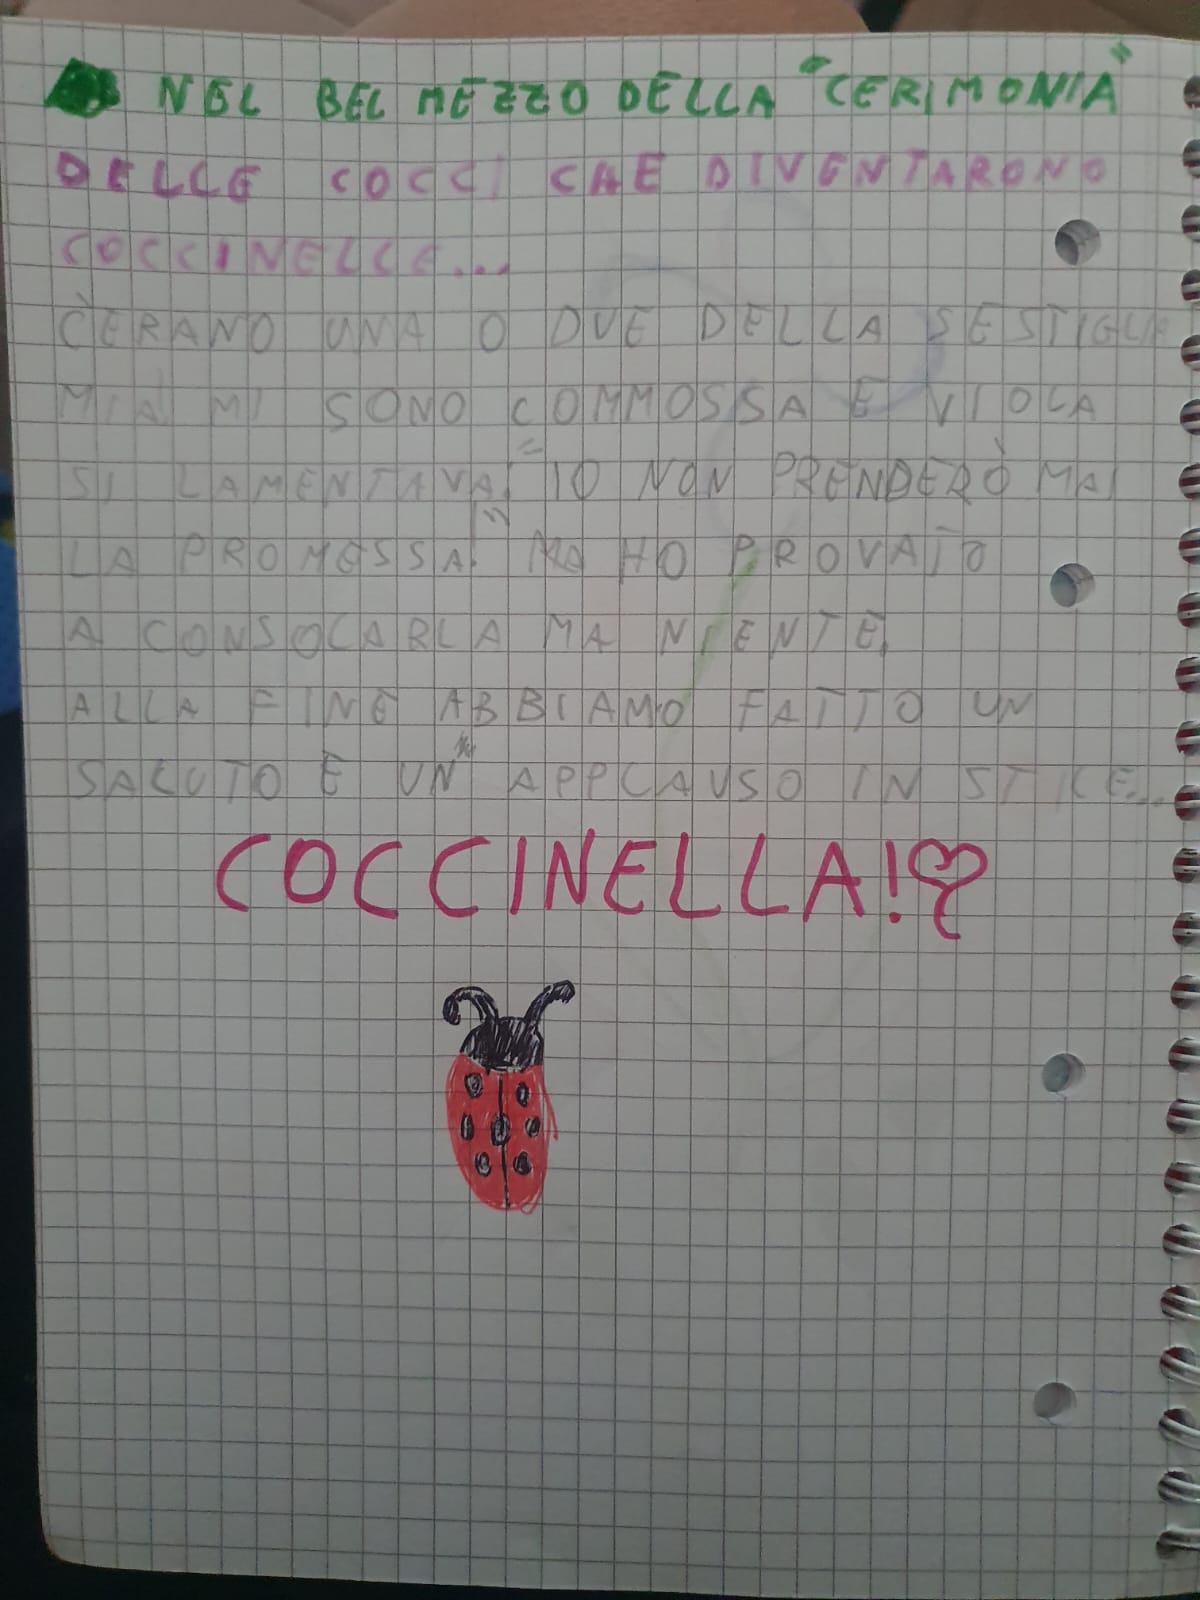 NEL BEL MEZZO DELLA "CERIMONIA"
DELLE COCCI CHE DIVENTARONO
COCCINELLE...
C'ERANO UNA O DUE DELLA SESTIGLIA
MIA MI SONO COMMOSSA E VIOLA
SI LAMENTAVA: "IO NON PRENDERÒ MAI
LA PROMESSA!" MA HO PROVATO
A CONSOLARLA MA NIENTE,
ALLA FINE ABBIAMO FATTO UN
SALUTO E UN APPLAUSO IN STILE...
COCCINELLA!